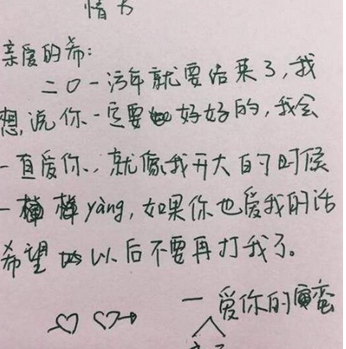 情书
亲爱的希:
二〇一污年就要结束了,我
想说你一定要好好的,我会
一直爱你,就像我开大的时候
一样yàng,如果你也爱我的话
希望以后不要再打我了。
一爱你的蛮